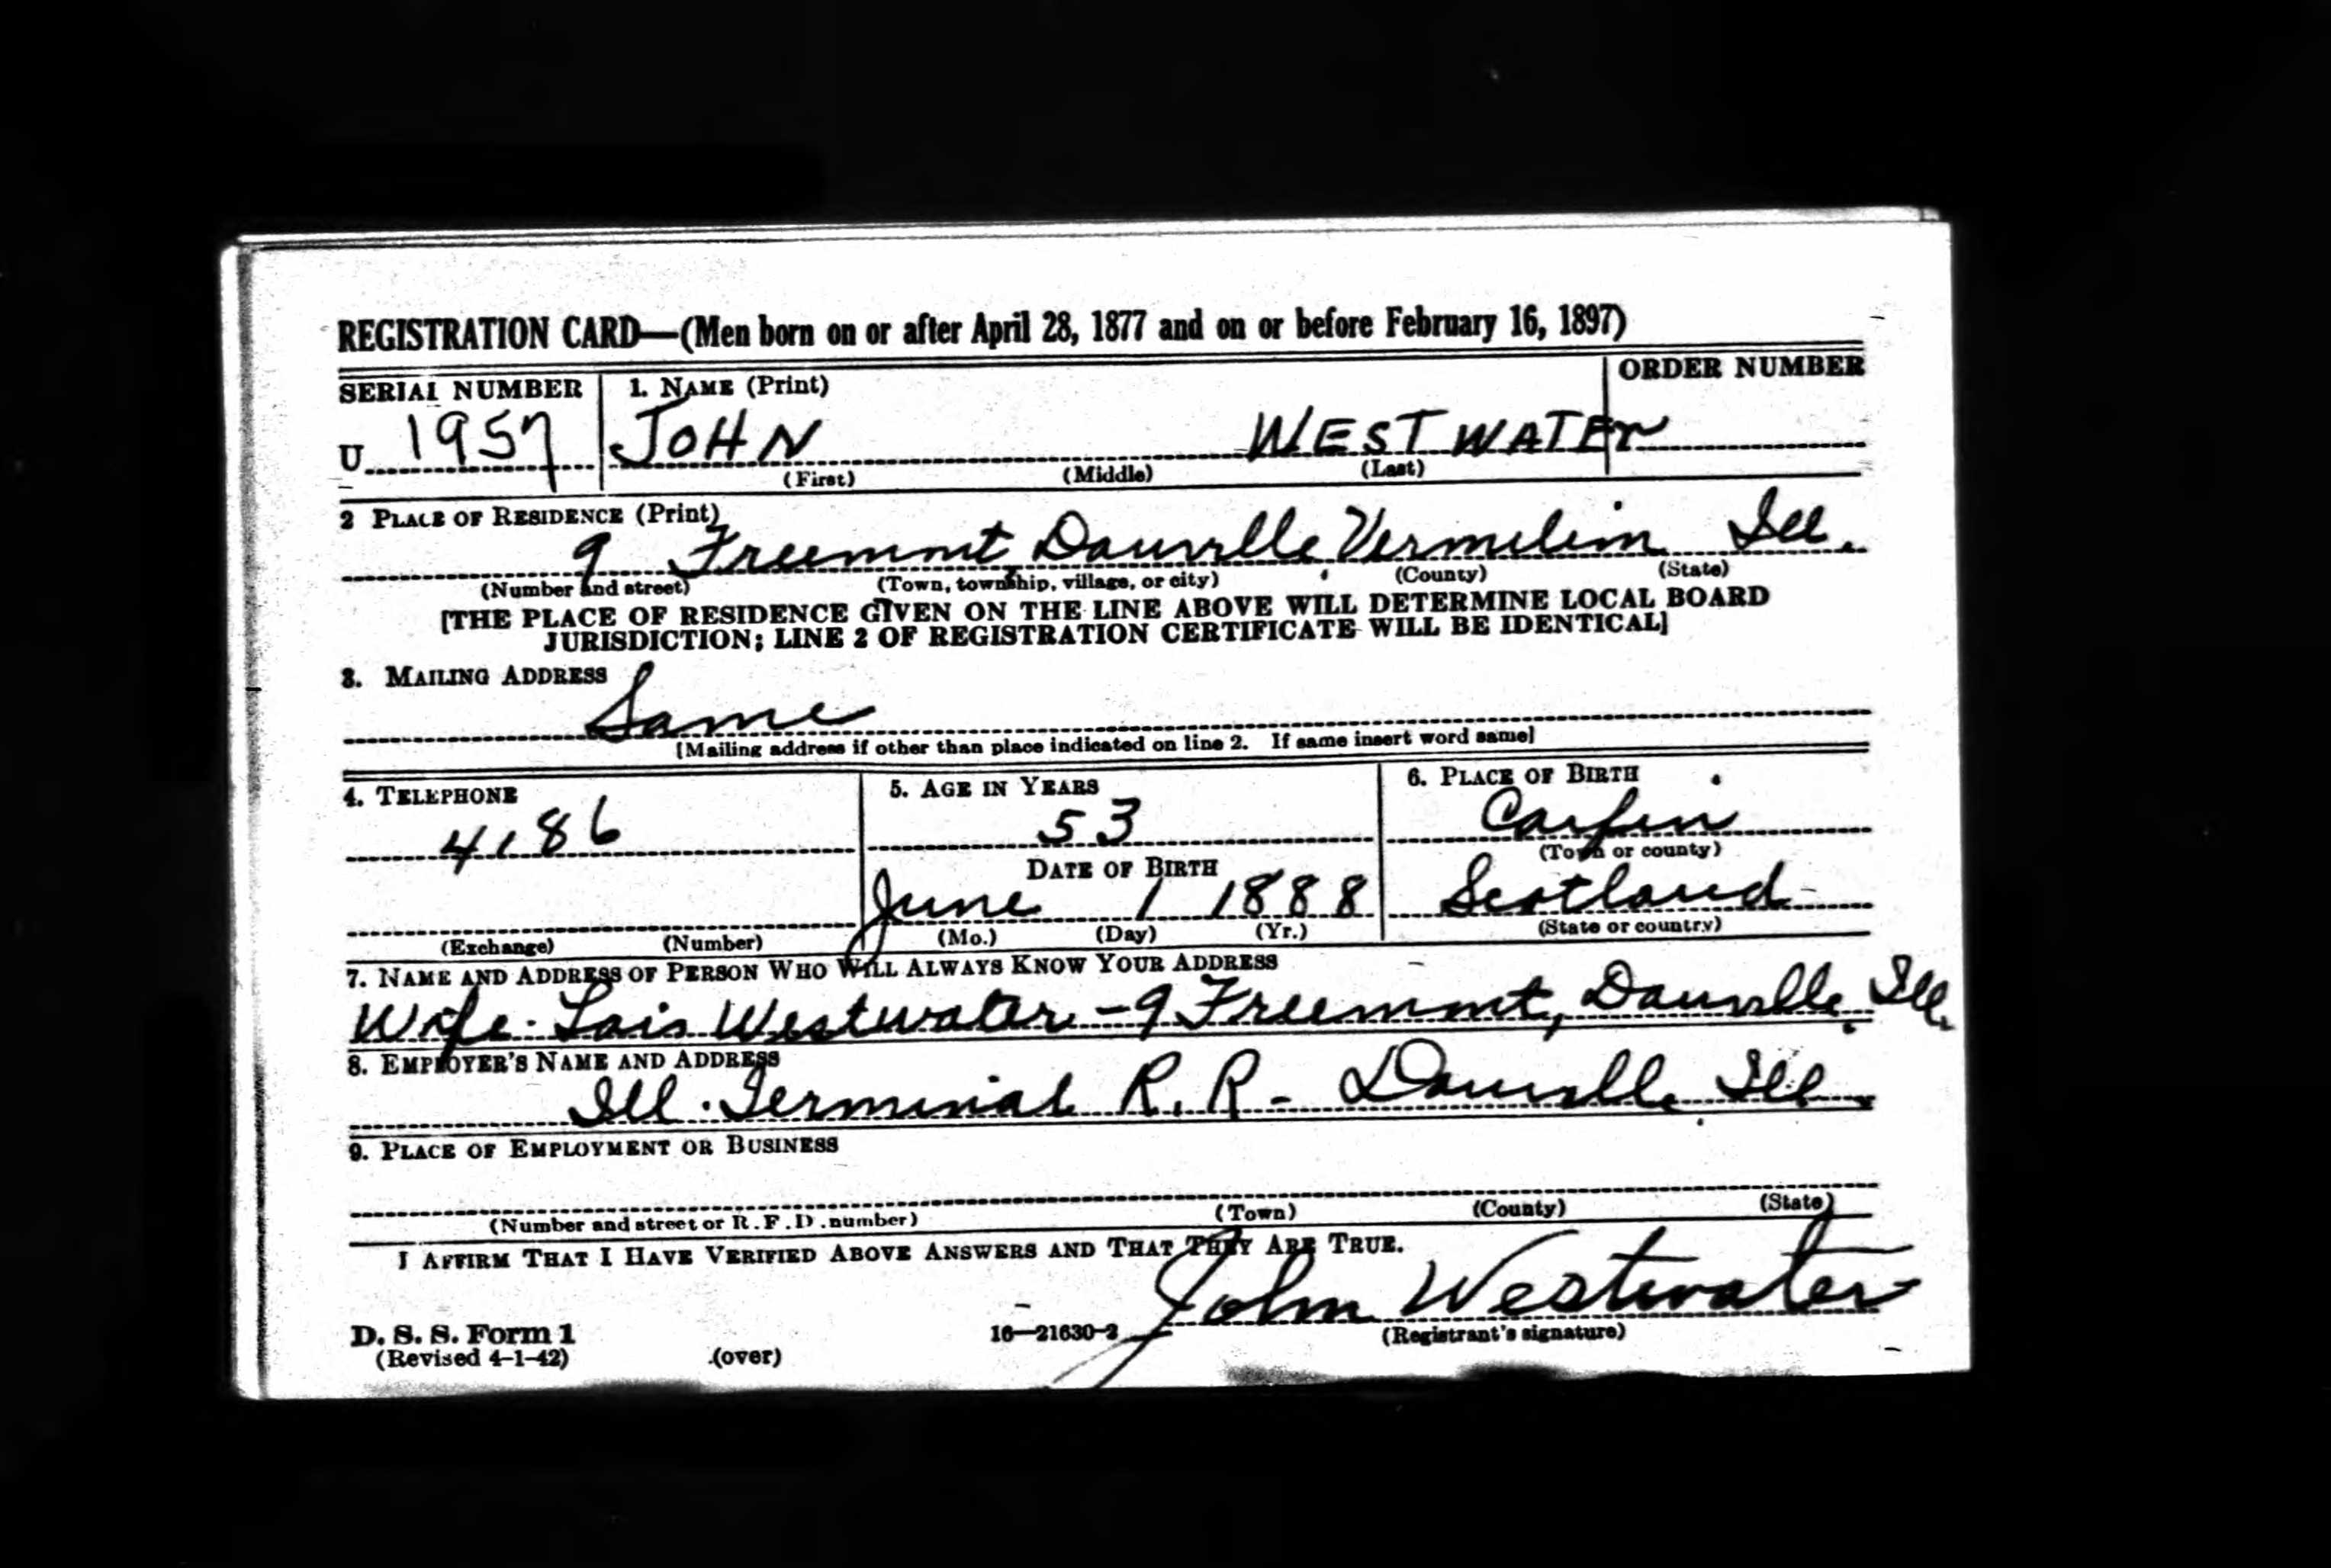 REGISTRATION CARD—(Men born on or after April 28, 1877 and on or before February 16, 1897)
SERIAL NUMBER 1. NAME (Print) ORDER NUMBER
U 1957 JOHN WESTWATEr
(First) (Middle) (Last)
2 PLACE OF RESIDENCE (Print)
9 Freemont Danville Vermilion Ill.
(Number and street) (Town, township, village, or city) (County) (State)
[THE PLACE OF RESIDENCE GIVEN ON THE LINE ABOVE WILL DETERMINE LOCAL BOARD
JURISDICTION; LINE 2 OF REGISTRATION CERTIFICATE WILL BE IDENTICAL]
3. MAILING ADDRESS
Same
[Mailing address if other than place indicated on line 2. If same insert word same]
4. TELEPHONE 5. AGE IN YEARS 6. PLACE OF BIRTH
4186 53 Carfin
DATE OF BIRTH (Town or county)
June 1 1888 Scotland
(Exchange) (Number) (Mo.) (Day) (Yr.) (State or country)
7. NAME AND ADDRESS OF PERSON WHO WILL ALWAYS KNOW YOUR ADDRESS
Wife - Lois Westwater - 9 Freemont, Danville, Ill.
8. EMPLOYER'S NAME AND ADDRESS
Ill. Terminal R.R - Danville, Ill.
9. PLACE OF EMPLOYMENT OR BUSINESS
(Number and street or R.F.D. number) (Town) (County) (State)
I AFFIRM THAT I HAVE VERIFIED ABOVE ANSWERS AND THAT THEY ARE TRUE.
John Westwater
D. S. S. Form 1 16—21630-2 (Registrant's signature)
(Revised 4-1-42) (over)